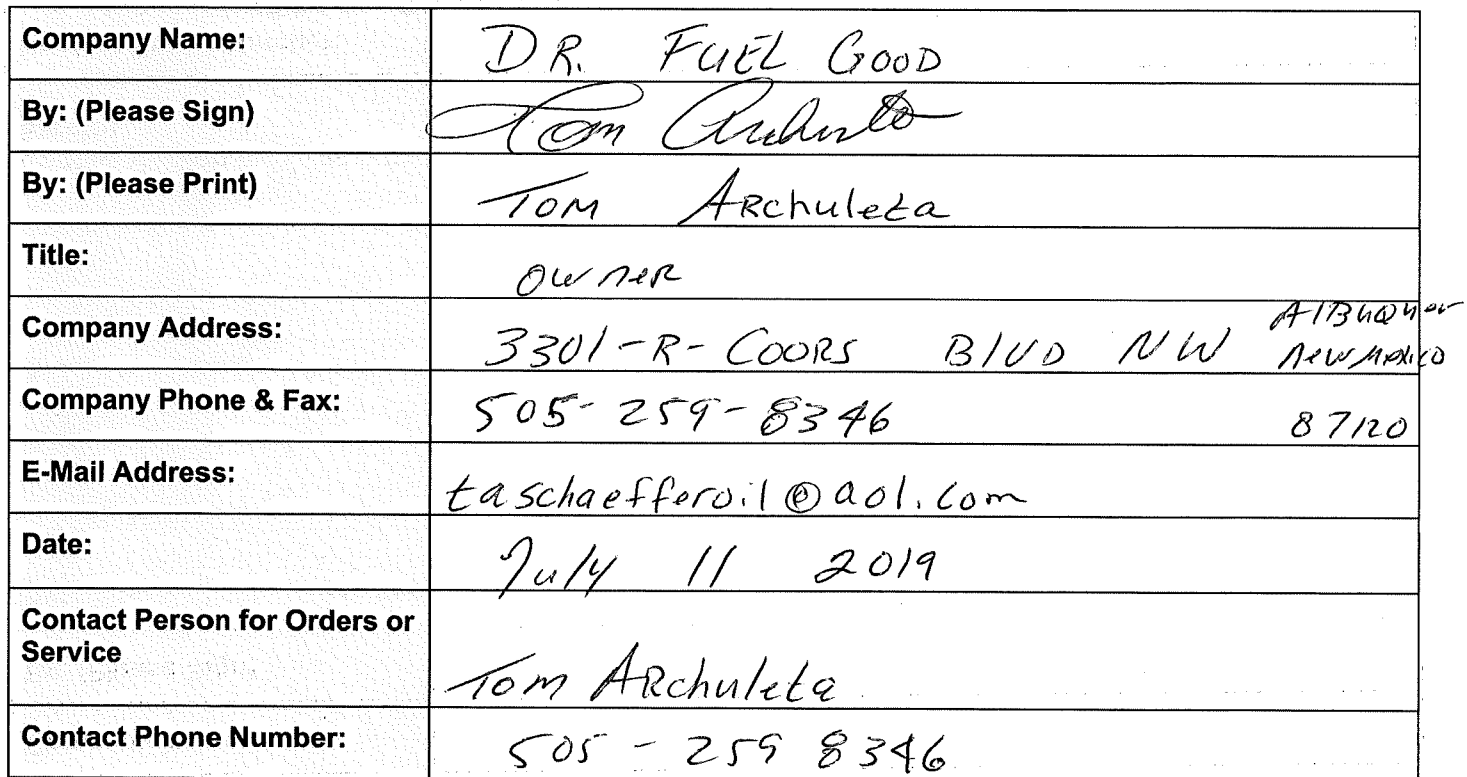 Company Name: DR. FUEL GOOD
By: (Please Sign) Tom
By: (Please Print) TOM ARchuleta
Title: owneR
Company Address: 3301-R-COORS BlVD NW
New Mexico
Company Phone & Fax: 505-259-8346 87120
E-Mail Address: taschaefferoil@aol.com
Date: July 11 2019
Contact Person for Orders or
Service Tom ARchuleta
Contact Phone Number: 505-259 8346